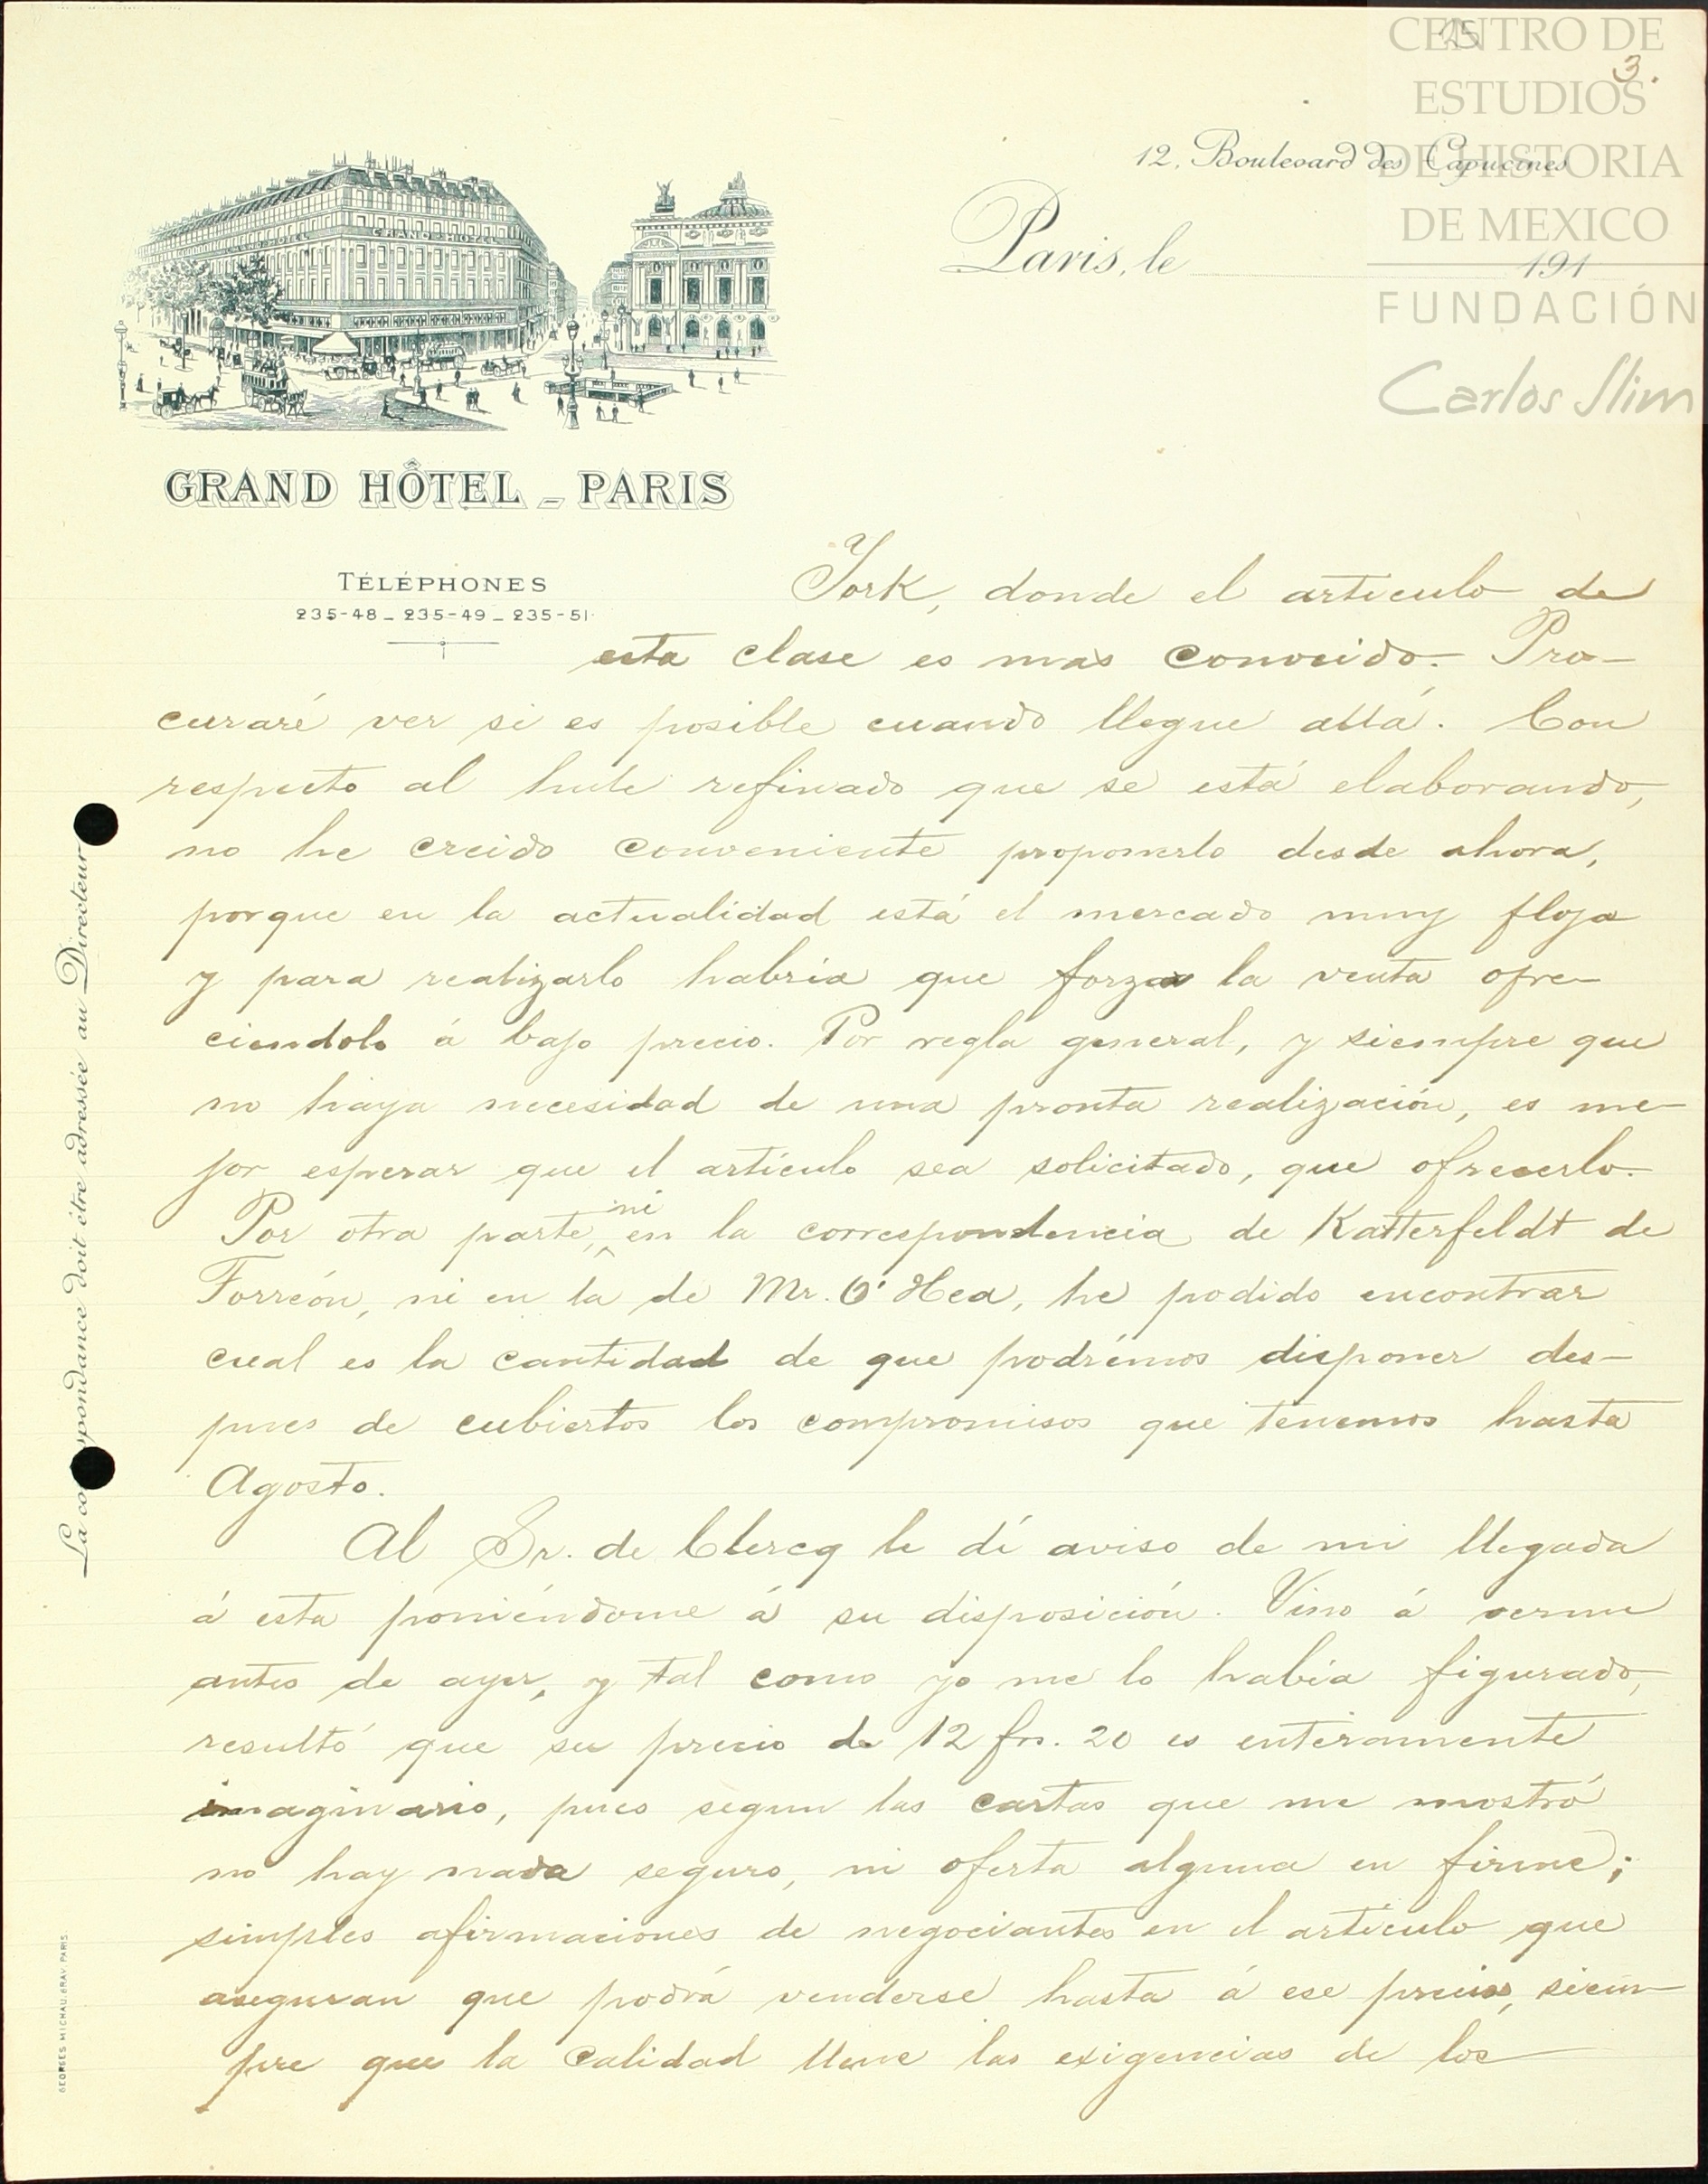 25
3.
CENTRO DE
ESTUDIOS
DE HISTORIA
DE MEXICO
FUNDACIÓN
Carlos Slim
12, Boulevard des Capucines
Paris, le 191
GRAND HOTEL
GRAND HOTEL
GRAND HÔTEL _ PARIS
TÉLÉPHONES
235-48 _ 235-49 _ 235-51
York, donde el articulo de
esta clase es mas conocido. Pro-
curaré ver si es posible cuando llegue allá. Con
respecto al hule refinado que se está elaborando,
no he creido conveniente proponerlo desde ahora,
porque en la actualidad está el mercado muy flojo
y para realizarlo habria que forzar la venta ofre-
ciendolo á bajo precio. Por regla general, y siempre que
no haya necesidad de una pronta realización, es me-
jor esperar que el artículo sea solicitado, que ofrecerlo.
Por otra parte, ni en la correspondencia de Katterfeldt de
Torreón, ni en la de Mr. O'Hea, he podido encontrar
cual es la cantidad de que podrémos disponer des-
pues de cubiertos los compromisos que tenemos hasta
Agosto.
Al Sr. de Clercq le dí aviso de mi llegada
á esta poniéndome á su disposición. Vino á verme
antes de ayer, y tal como yo me lo habia figurado,
resultó que su precio de 12 frs. 20 es enteramente
imaginario, pues segun las cartas que me mostró
no hay nada seguro, ni oferta alguna en firme;
simples afirmaciones de negociantes en el artículo que
aseguran que podrá venderse hasta á ese precio, siem-
pre que la calidad llene las exigencias de los
La correspondance doit être adressée au Directeur
GEORGES MICHAU, GRAV. PARIS.